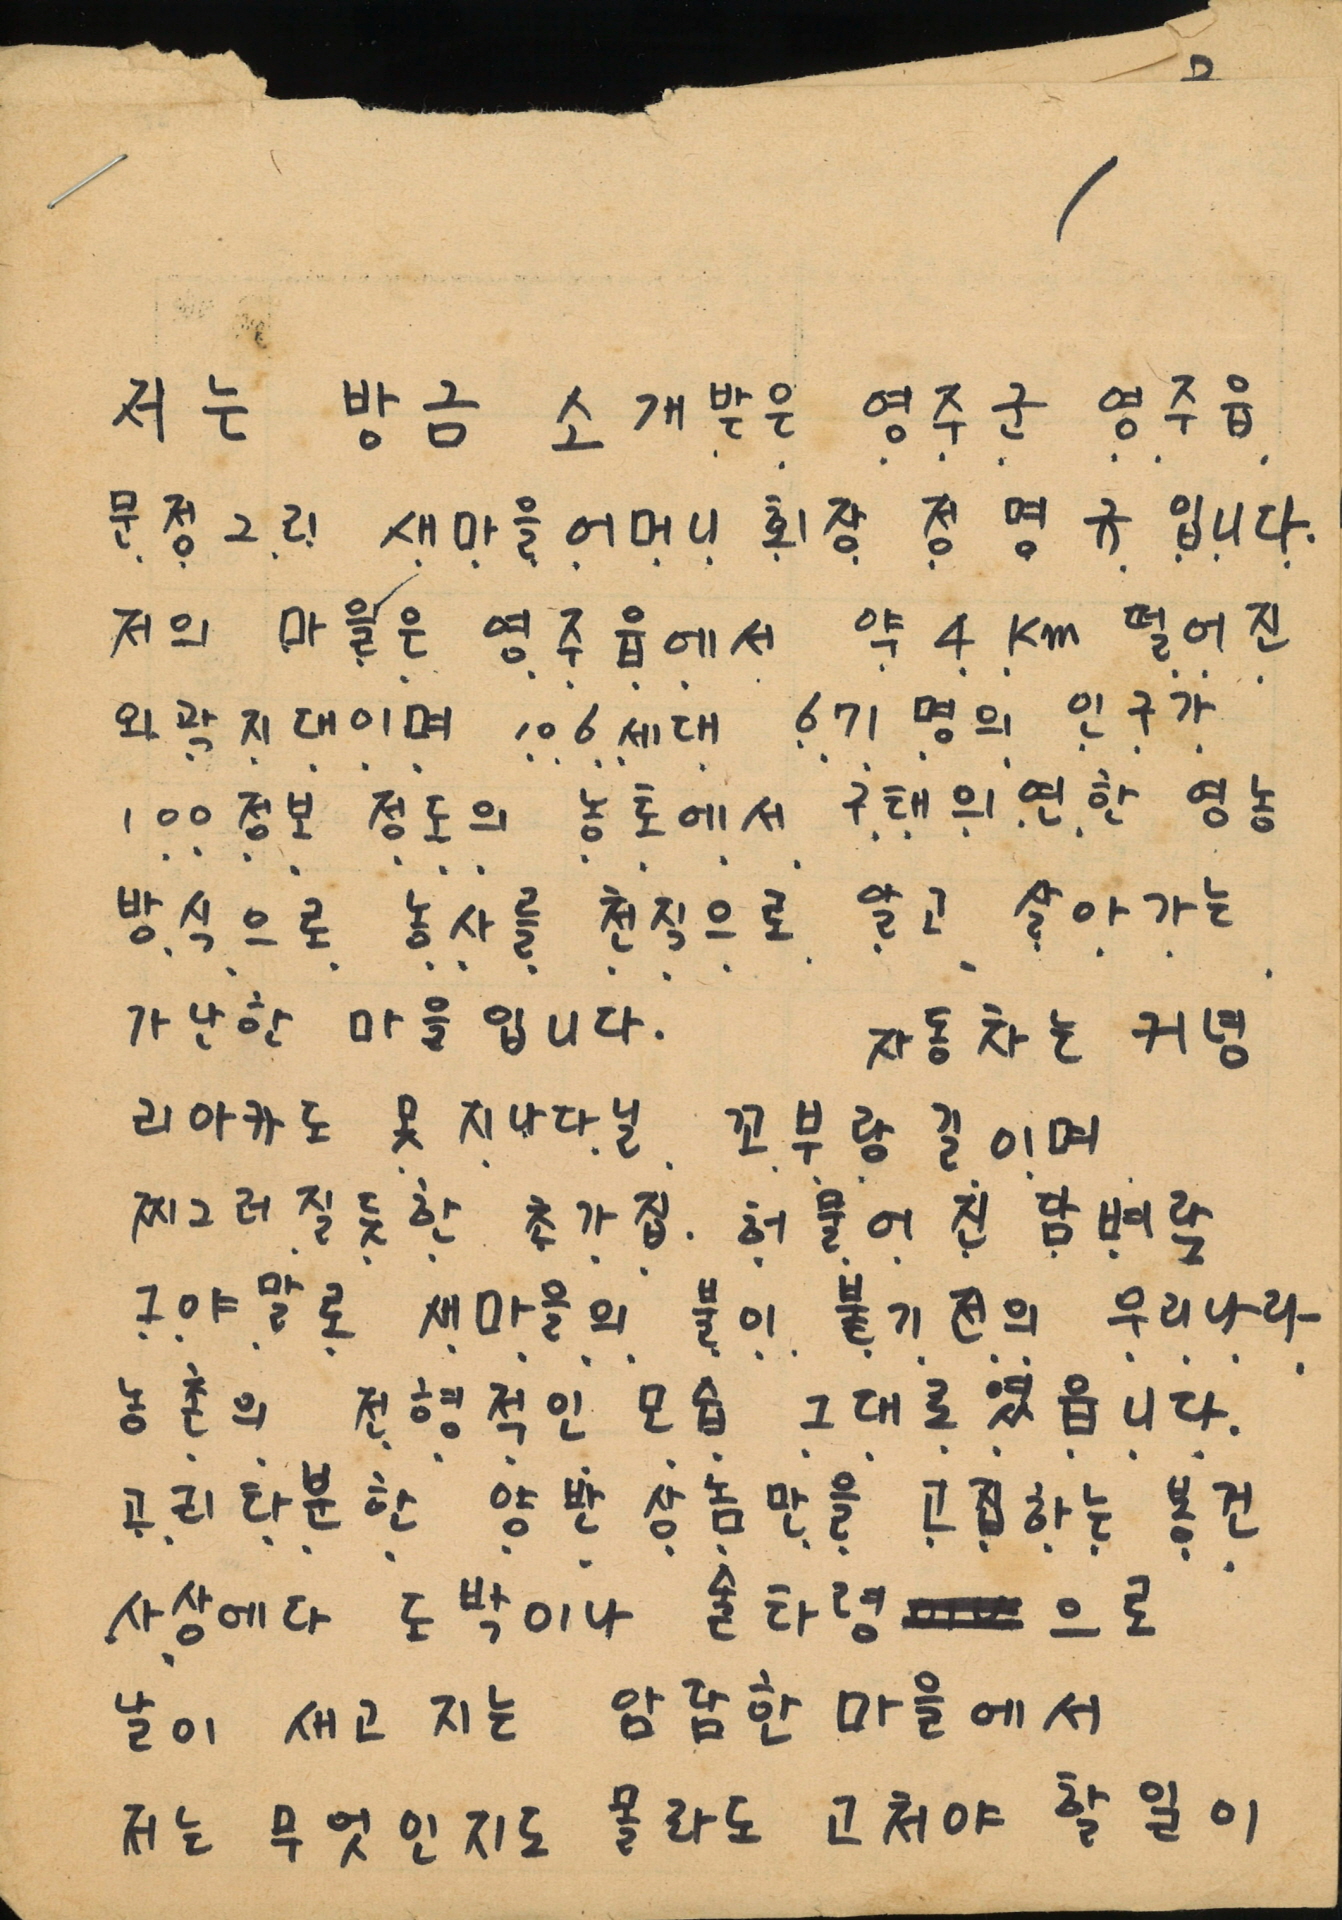 저는 방금 소개받은 영주군 영주읍
문정그리 새마을어머니 회장 정명규입니다.
저의 마을은 영주읍에서 약 4Km 떨어진
외곽지대이며 106세대 671명의 인구가
100정보 정도의 농토에서 구태의연한 영농
방식으로 농사를 천직으로 알고 살아가는
가난한 마을입니다. 자동차는 커녕
리아카도 못 지나다닐 꼬부랑길이며
찌그러질듯한 초가집. 허물어진 담벼락
구야말로 새마을의 불이 붙기전의 우리나라
농촌의 전형적인 모습 그대로였읍니다.
고리타분한 양반 상놈만을 고집하는 봉건
사상에다 도박이나 술타령으로
날이 새고 지는 암람한 마을에서
저는 무엇인지도 몰라도 고쳐야 할 일이